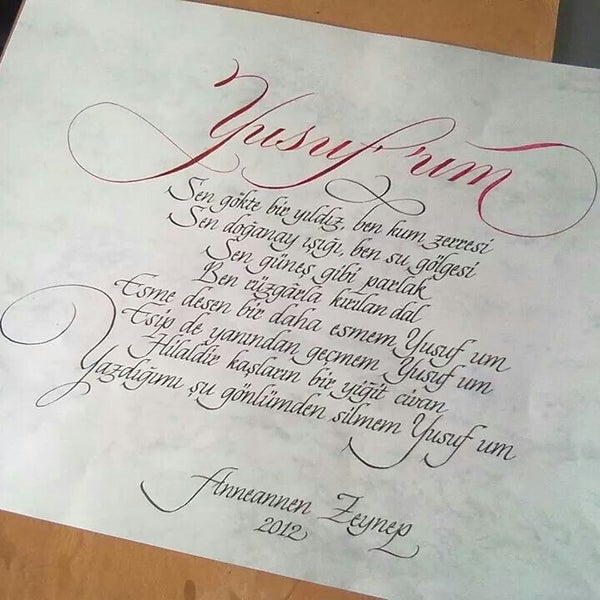 Yusuf'um
Sen gökte bir yıldız, ben kum zerresi
Sen doğanay ışığı, ben su gölgesi
Sen güneş gibi parlak
Ben rüzgârla kırılan dal
Esme desen bir daha esmem Yusuf um
Esip de yanından geçmem Yusuf um
Hilaldir kaşların bir yiğit civan
Yazdığımı şu gönlümden silmem Yusuf um
Anneannen Zeynep
2012